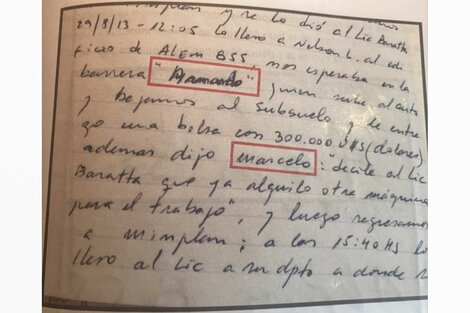 y se lo dió al Lic Baratta
29/8/13 - 12:05 lo llevo a Nelson L. al edi
ficio de ALEM 855, nos esperaba en la
barrera "Armando" quien sube al auto
y bajamos al subsuelo y le entre
go una bolsa con 300.000 U$S (dolares)
ademas dijo marcelo: "decile al Lic
Baratta que ya alquilo otra máquina
para el trabajo", y luego regresamos
a minplan; a las 15:40HS lo
llevo al Lic a su dpto a donde